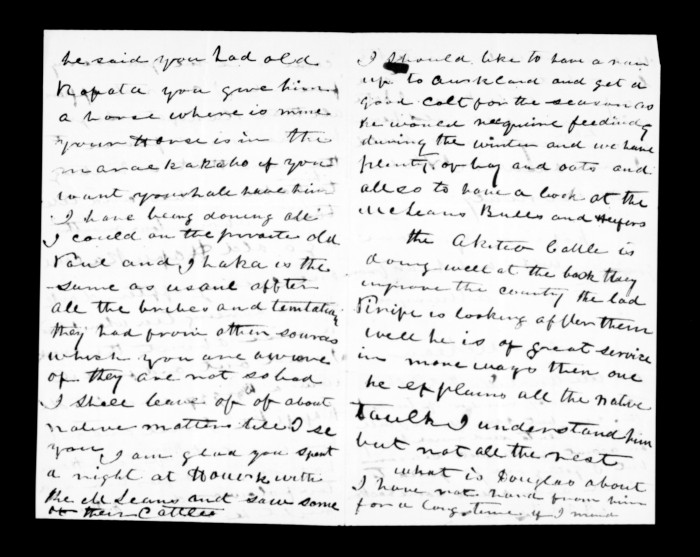 he said you had old
Ropata you give him
a horse where is mine
your Horse is in the
maraekakaho if you
want you shale have him
I have being doning all
I could on the private old
Paul and Ihaka is the
same as usaul affter
all the bribes and temtation
they had from other sources
which you are aware
of they are not so bad
I shall leave of of about
native matters till I se
you I am glad you spent
a night at Howick with
the McLeans and saw some
of their Cattles
I should like to have a run
up to Awckland and get a
good Colt for the season as
he would requrire feeding
during the winter and we have
plenty of hay and oats and
allso to have a look at the
McLeans Bulls and Heifers
the Akitio Cattle is
doing well at the back they
improve the country the lad
Piripi is looking after them
well he is of great service
in more ways then one
he explains all the native
taulk I understand him
but not all the rest
what is Douglas about
I have not hard from him
for a long time if I